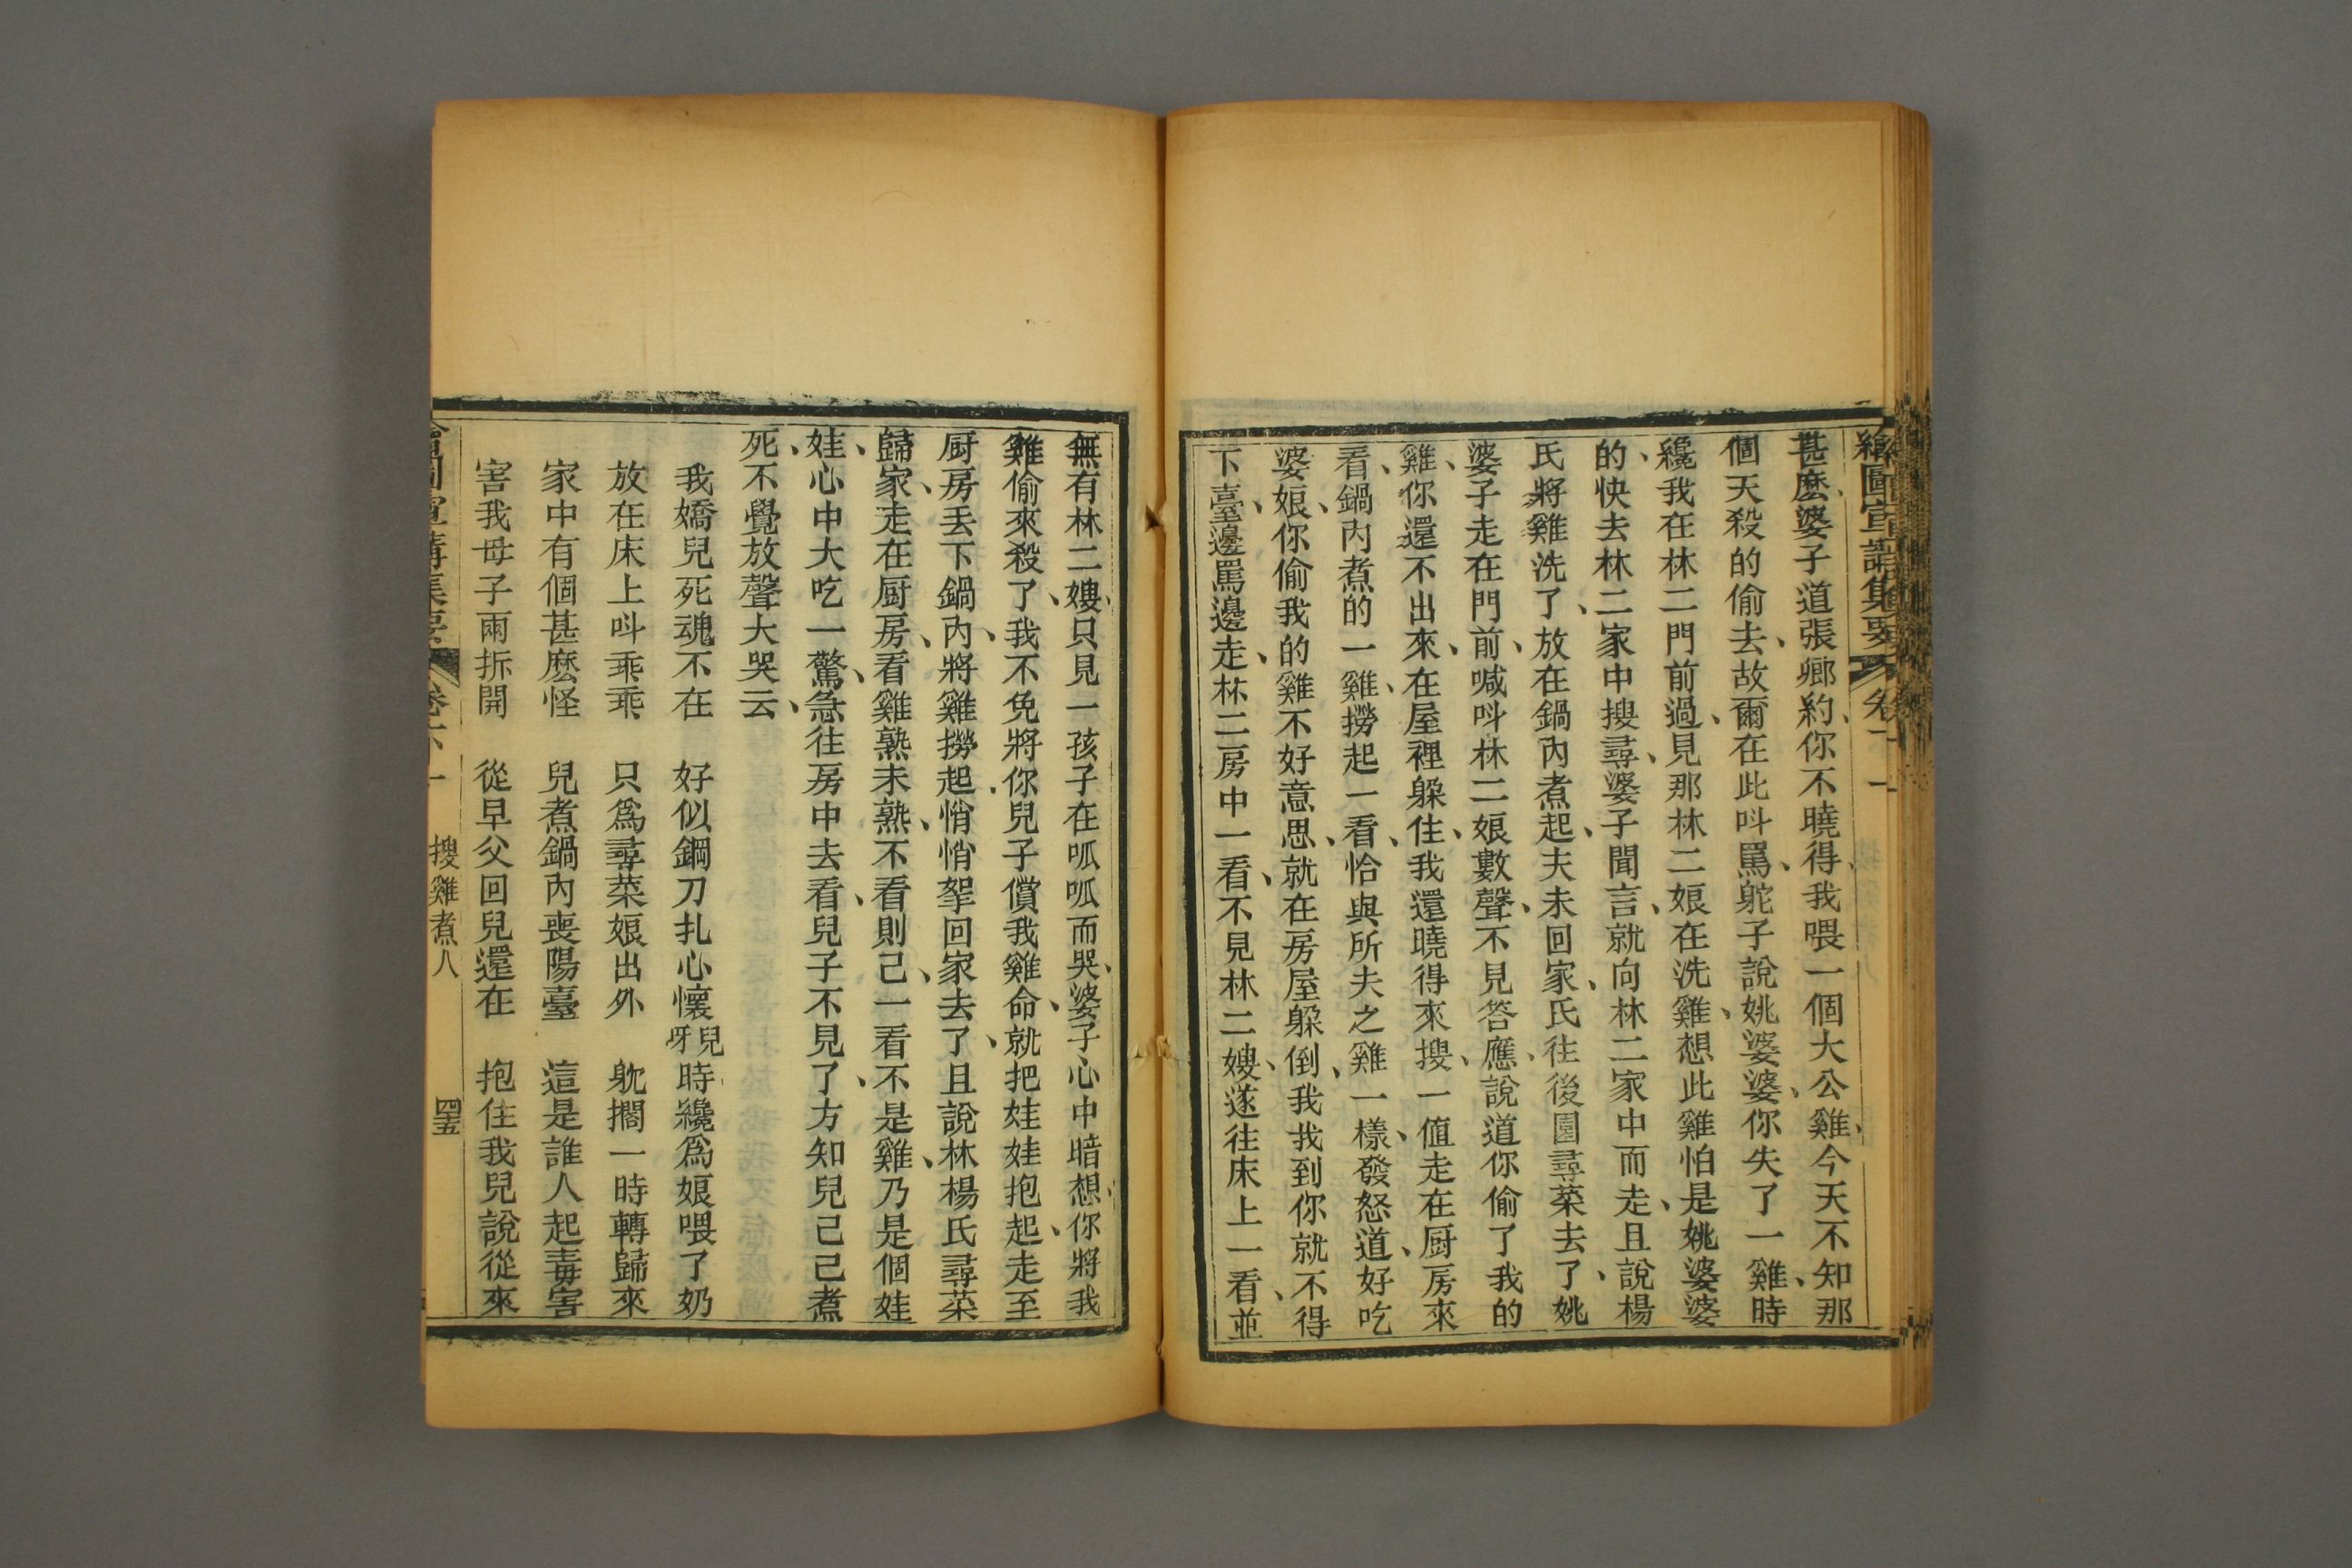 繪圖宣講集要 卷十一
甚麽婆子道張鄉約、你不曉得、我喂一個大公雞、今天不知那
個天殺的偷去、故爾在此呌罵、鴕子說姚婆婆、你失了一雞、時
纔我在林二門前過、見那林二娘在洗雞、想此雞怕是姚婆婆
的、快去林二家中搜尋、婆子聞言、就向林二家中而走、且說楊
氏將雞洗了、放在鍋內煮起、夫未回家、氏往後園尋菜去了、姚
婆子走在門前、喊呌林二娘數聲、不見答應、說道你偷了我的
雞、你還不出來、在屋裡躲住、我還曉得來搜、一值走在厨房來
看、鍋內煮的一雞、撈起一看、恰與所夫之雞一樣、發怒道、好吃
婆娘、你偷我的雞不好意思、就在房屋躲倒、我我到你就不得
下臺、邊罵邊走、林二房中一看、不見林二嫂、遂往床上一看、並
無有林二嫂、只見一孩子在呱呱而哭、婆子心中暗想、你將我
雞偷來殺了、我不免將你兒子償我雞命、就把娃娃抱起、走至
厨房丢下鍋內、將雞撈起悄悄拏回家去了、且說林楊氏尋菜
歸家、走在厨房、看雞熟未熟、不看則己、一看不是雞、乃是個娃
娃、心中大吃一驚、急往房中去看、兒子不見了、方知兒己己煮
死、不覺放聲大哭云、
我嬌兒死魂不在　好似鋼刀扎心懷兒呀　時纔爲娘喂了奶
放在床上呌乖乖　只爲尋菜娘出外　躭擱一時轉歸來
家中有個甚麽怪　兒煮鍋內喪陽臺　這是誰人起毒害
害我母子兩拆開　從早父回兒還在　抱住我兒說從來
繪圖宣講集要 卷十一 搜雞煮人 四五